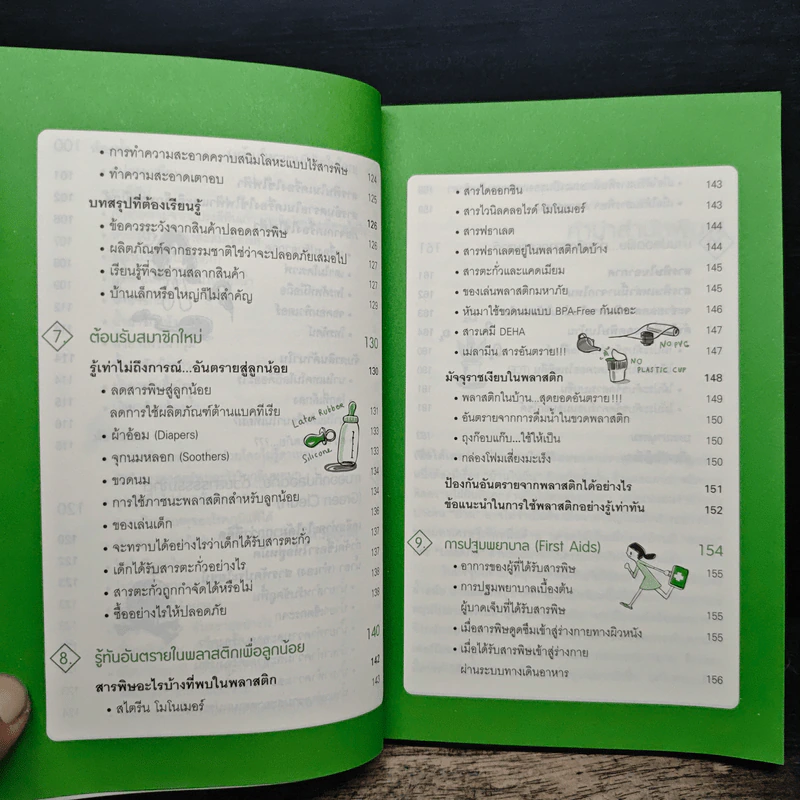 • การทำความสะอาดคราบสนิมโลหะแบบไร้สารพิษ 124
• ทำความสะอาดเตาอบ 125
บทสรุปที่ต้องเรียนรู้ 126
• ข้อควรระวังจากสินค้าปลอดสารพิษ 126
• ผลิตภัณฑ์จากธรรมชาติใช่ว่าจะปลอดภัยเสมอไป 127
• เรียนรู้ที่จะอ่านสลากสินค้า 127
• บ้านเล็กหรือใหญ่ก็ไม่สำคัญ 129
7. ต้อนรับสมาชิกใหม่ 130
รู้เท่าไม่ถึงการณ์...อันตรายสู่ลูกน้อย 130
• ลดสารพิษสู่ลูกน้อย
ลดการใช้ผลิตภัณฑ์ต้านแบคทีเรีย 131
• ผ้าอ้อม (Diapers) 131
• จุกนมหลอก (Soothers) 133
• ขวดนม 133
• การใช้ภาชนะพลาสติกสำหรับลูกน้อย 134
• ของเล่นเด็ก 136
• จะทราบได้อย่างไรว่าเด็กได้รับสารตะกั่ว 137
• เด็กได้รับสารตะกั่วอย่างไร 137
• สารตะกั่วถูกกำจัดได้หรือไม่ 138
• ซื้ออย่างไรให้ปลอดภัย 138
Latex Rubber
Silicone
8. รู้ทันอันตรายในพลาสติกเพื่อลูกน้อย 140
สารพิษอะไรบ้างที่พบในพลาสติก 142
• สไตรีน โมโนเมอร์ 143
• สารไดออกซิน 143
• สารไวนิลคลอไรด์ โมโนเมอร์ 143
• สารฟธาเลต 144
• สารฟธาเลตอยู่ในพลาสติกใดบ้าง 144
• สารตะกั่วและแคดเมียม 145
• ของเล่นพลาสติกมหาภัย 145
• หันมาใช้ขวดนมแบบ BPA-Free กันเถอะ 146
• สารเคมี DEHA 147
• เมลามีน สารอันตราย!!! 147
NO PVC
NO PLASTIC CUP
มัจจุราชเงียบในพลาสติก 148
• พลาสติกในบ้าน...สุดยอดอันตราย!!! 149
• อันตรายจากการดื่มน้ำในขวดพลาสติก 150
• ถุงก๊อบแก๊บ...ใช้ให้เป็น 150
• กล่องโฟมเสี่ยงมะเร็ง 150
ป้องกันอันตรายจากพลาสติกได้อย่างไร 151
ข้อแนะนำในการใช้พลาสติกอย่างรู้เท่าทัน 152
9. การปฐมพยาบาล (First Aids) 154
• อาการของผู้ที่ได้รับสารพิษ 155
• การปฐมพยาบาลเบื้องต้น
ผู้บาดเจ็บที่ได้รับสารพิษ 155
• เมื่อสารพิษดูดซึมเข้าสู่ร่างกายทางผิวหนัง 155
• เมื่อได้รับสารพิษเข้าสู่ร่างกาย
ผ่านระบบทางเดินอาหาร 156